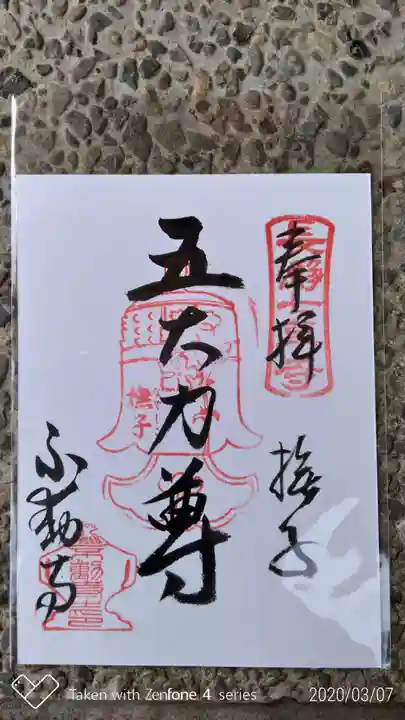 奉拝
撫子
五大力尊
撫子
不動寺
Taken with Zenfone 4 series
2020/03/07